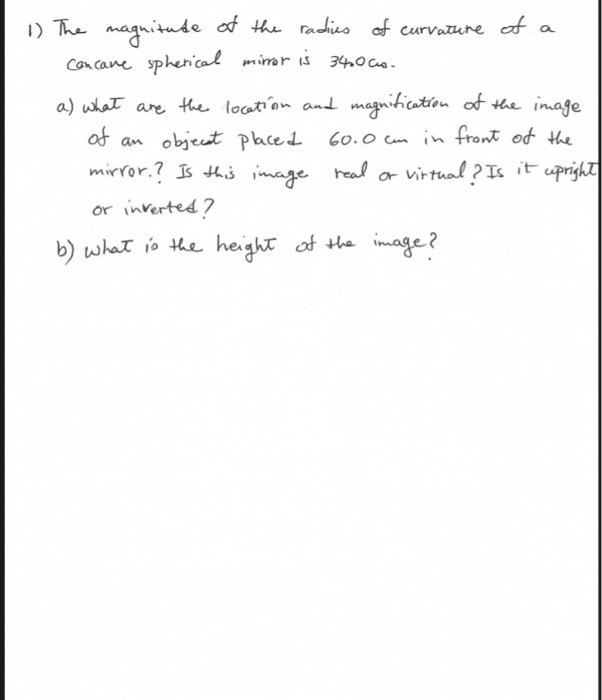 1) The magnitude of the radius of curvature of a
concave spherical mirror is 34.0 cm.
a) what are the location and magnification of the image
of an object placed 60.0 cm in front of the
mirror.? Is this image real or virtual? Is it upright
or inverted?
b) what is the height of the image?